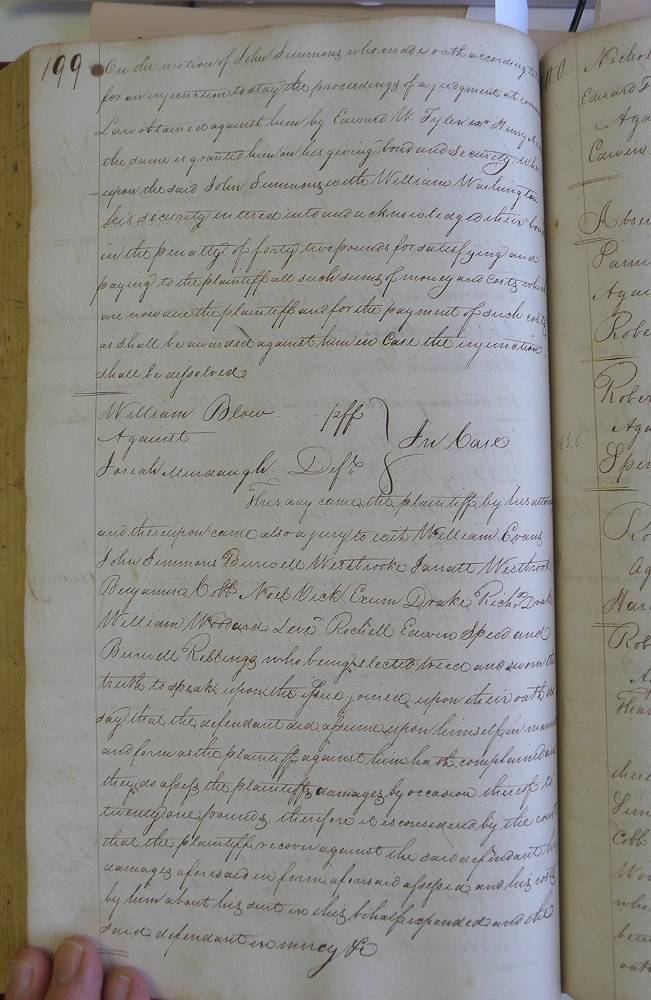 199
On the motion of John Simmons who made oath according to
for an injunction to stay the proceedings of a judgment at com
Law obtained against him by Edward W. Tyler exr. Henry
the same is granted him on his giving bond and security
upon the said John Simmons with William Washington
his security entered into and acknowledged their bon
in the penalty of forty two pounds for satisfying and
paying to the plaintiff all such sums of money and costs which
are now due the plaintiff and for the payment of such costs
as shall be awarded against him in Case the injunction
shall be dissolved
William Blow pff
Against
In Case
Josiah Murdaugh Deft.
This day came the plaintiff by his attor
and thereupon came also a jury to wit William Evans
John Simmons Burwell Westbrooke Jarratt Westbrook
Benjamin Cobb Noel Vick Exum Drake Richd. Drake
William Woodard Levi Rochell Edwin Speed and
Burwell Robbings who being elected tried and sworn the
truth to speak upon the issue joined upon their oath do
say that the defendant did assume upon himself in mann
and form as the plaintiff against him hath complained and
they do assess the plaintiffs damages by occasion thereof to
twenty one pounds therefore it is considered by the court
that the plaintiff recover against the said defendant his
damages aforesaid in form aforesaid assessed and his costs
by him about his suit in this behalf expended and the
said defendant in mercy &c
00
Nichol
Edward
Aga
Absen
Aga
Robe
Rober
Aga
Spe
Ro
Ag
Har
Rob
A
there
Sim
Cobb
Woo
who